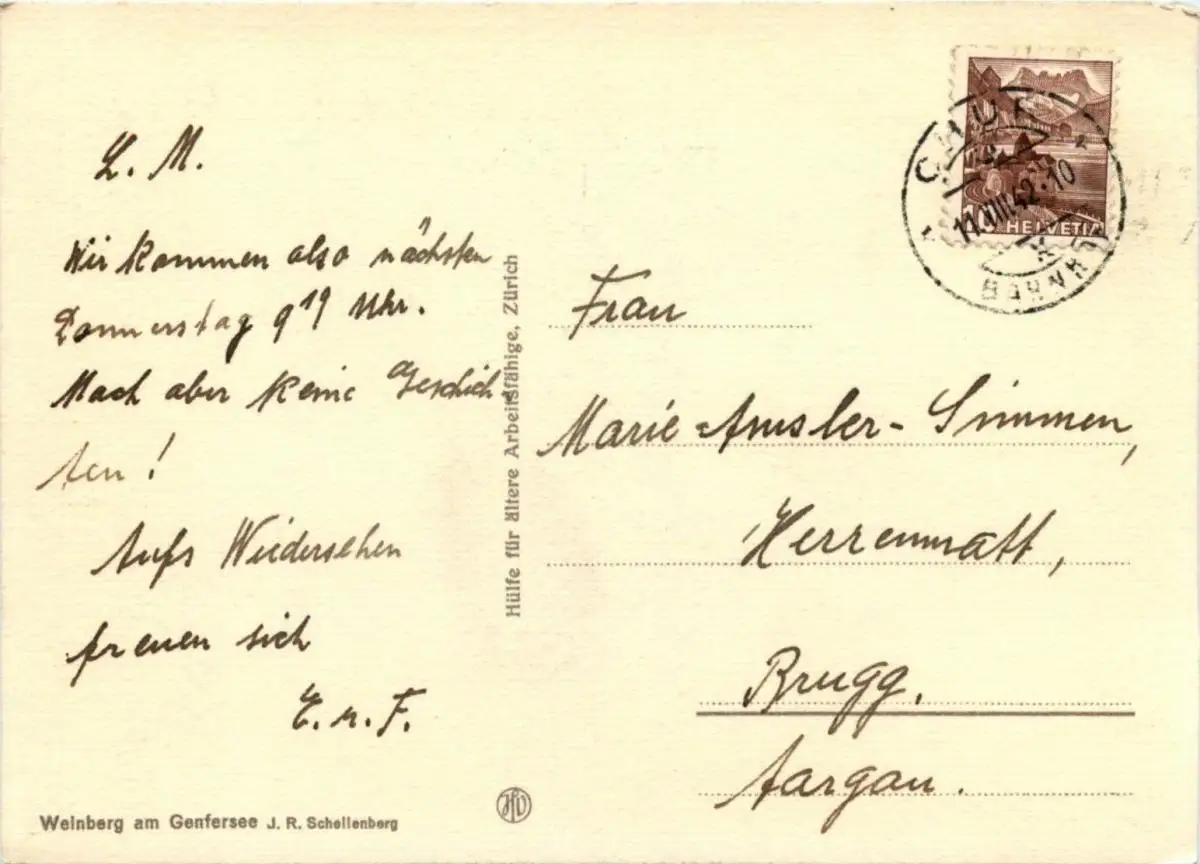 L. M.
Wir kommen also nächsten
Donnerstag 9¹⁹ Uhr.
Mach aber keine Geschich
ten!
Aufs Wiedersehen
freuen sich
E. u. F.
Weinberg am Genfersee J. R. Schellenberg
Hülfe für ältere Arbeitsfähige, Zürich
CHUR
11.VIII.42.10
BAHNHOF
10 HELVETIA
Frau
Marie Amsler-Simmen,
Herrenmatt,
Brugg.
Aargau.